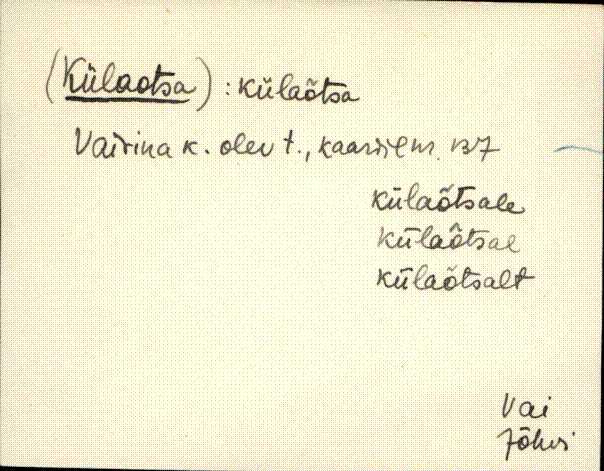 (Külaotsa) : külaõtsa
Vairina k. olev t., kaardil nr. 137
külaõtsale
külaõtsal
külaõtsalt
Vai
Jõhvi